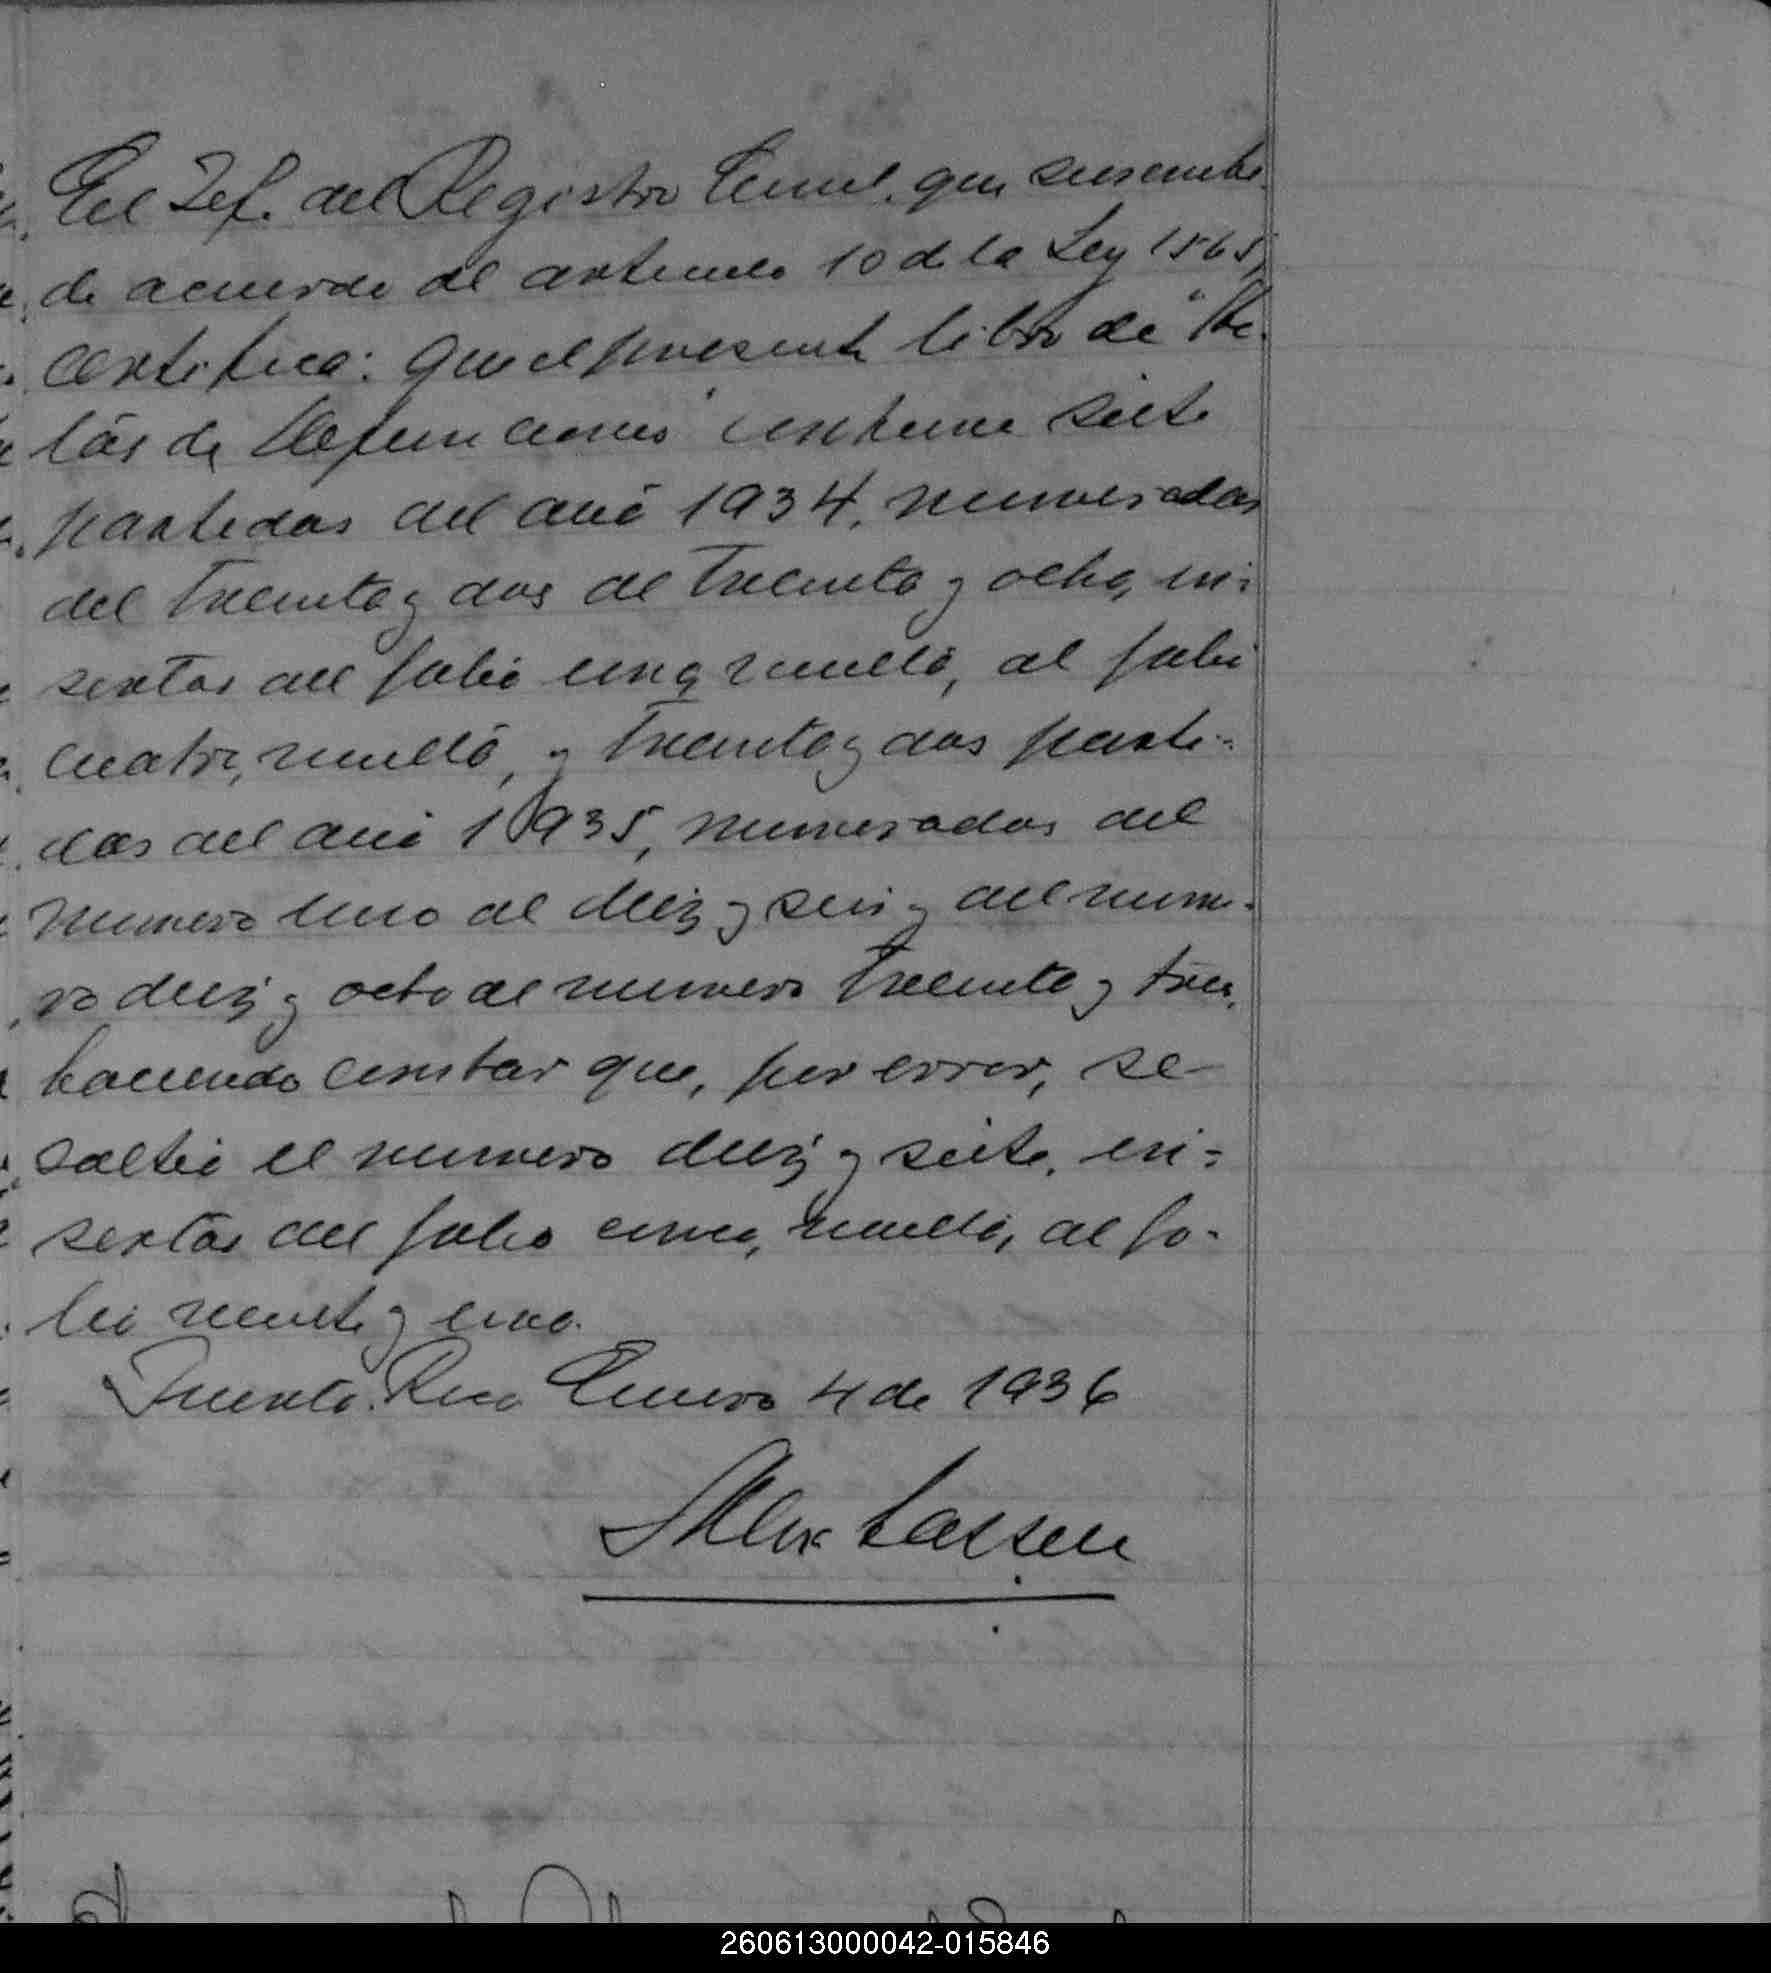 El Jef. del Registro Civil, que suscribe
de acuerdo al articulo 10 de la Ley 1565,
certifica: que el presente libro de "Ac-
tas de Defunciones" contiene siete
partidas del año 1934, numeradas
del treinta y dos al treinta y ocho, in-
sertas del folio uno, vuelto, al folio
cuatro, vuelto, y treinta y dos parti-
das del año 1935, numeradas del
numero uno al diez y seis y del nume-
ro diez y ocho al numero treinta y tres,
haciendo constar que, por error, se
saltó el numero diez y siete, in-
sertas del folio cinco, vuelto, al fo-
lio veinte y uno.
Puerto Rico Enero 4 de 1936
Alex Larsen
260613000042-015846